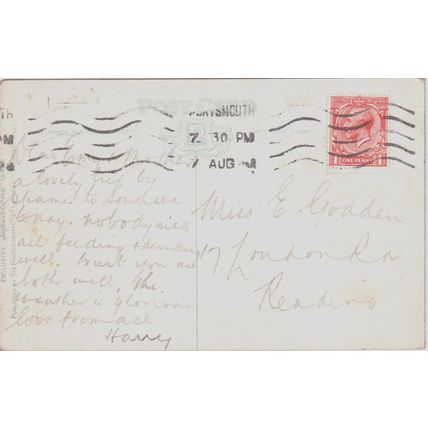 POST CARD
PORTSMOUTH
7. 30 PM
7 AUG
TH
PM
ONE PENNY
a lovely trip by
steamer to Southsea
today. nobody sick
all feeding & drinking
well. Trust you are
both well. The
weather is glorious
love from all
Harry
Miss E Godden
17 London Rd
Reading